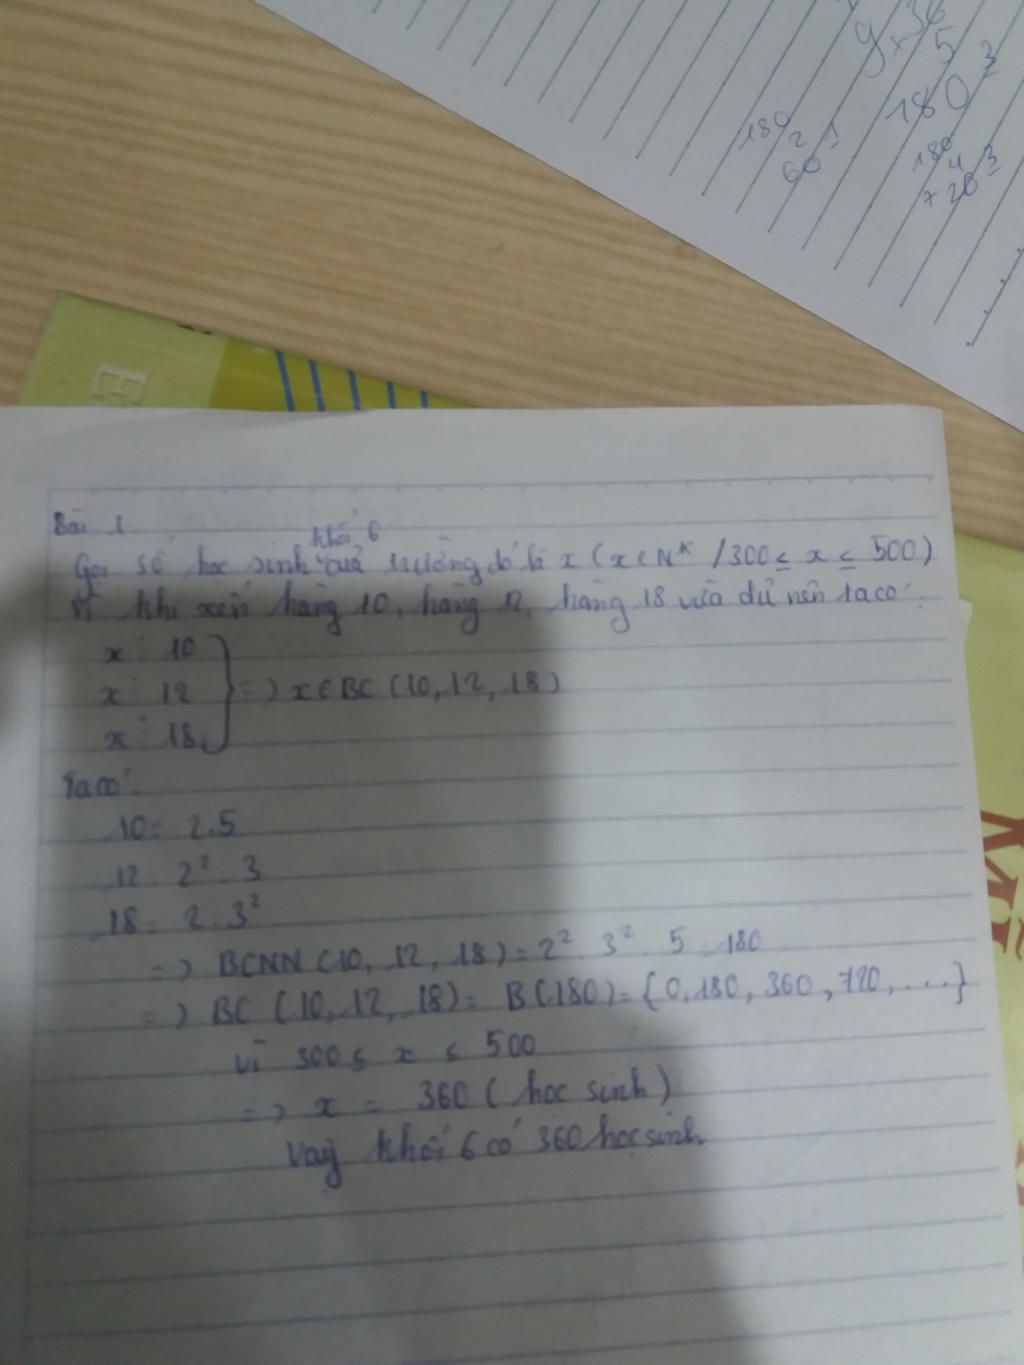 9.36
5
180 3
180
2
60 1
180
4
+ 20 3
E
Bài 1
khối 6
Gọi số học sinh của trường đó là x (x ∈ N* / 300 ≤ x ≤ 500)
Vì khi xếp hàng 10, hàng 12, hàng 18 vừa đủ nên ta có:
x ⋮ 10
x ⋮ 12 } => x ∈ BC (10, 12, 18)
x ⋮ 18
Ta có:
10 = 2.5
12 = 2² . 3
18 = 2 . 3²
=> BCNN (10, 12, 18) = 2² . 3² . 5 = 180
=> BC (10, 12, 18) = B(180) = {0, 180, 360, 720, ...}
vì 300 ≤ x ≤ 500
=> x = 360 (học sinh)
Vậy khối 6 có 360 học sinh